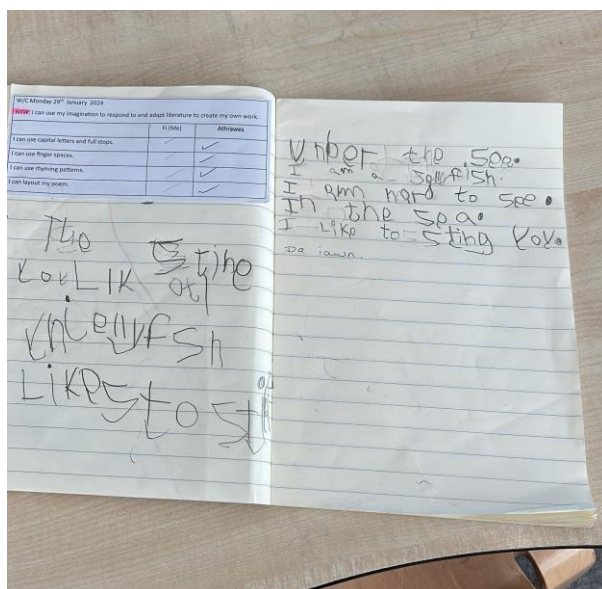 W/C Monday 29th January 2024
NEW: I can use my imagination to respond to and adapt literature to create my own work.
Fi (Me) Athrawes
I can use capital letters and full stops.
I can use finger spaces.
I can use rhyming patterns.
I can layout my poem.
The
LIK
Likes to sti
Unber the sea.
I am a jellyfish.
I am hard to see.
In the sea.
I Like to sting you.
Da iawn.